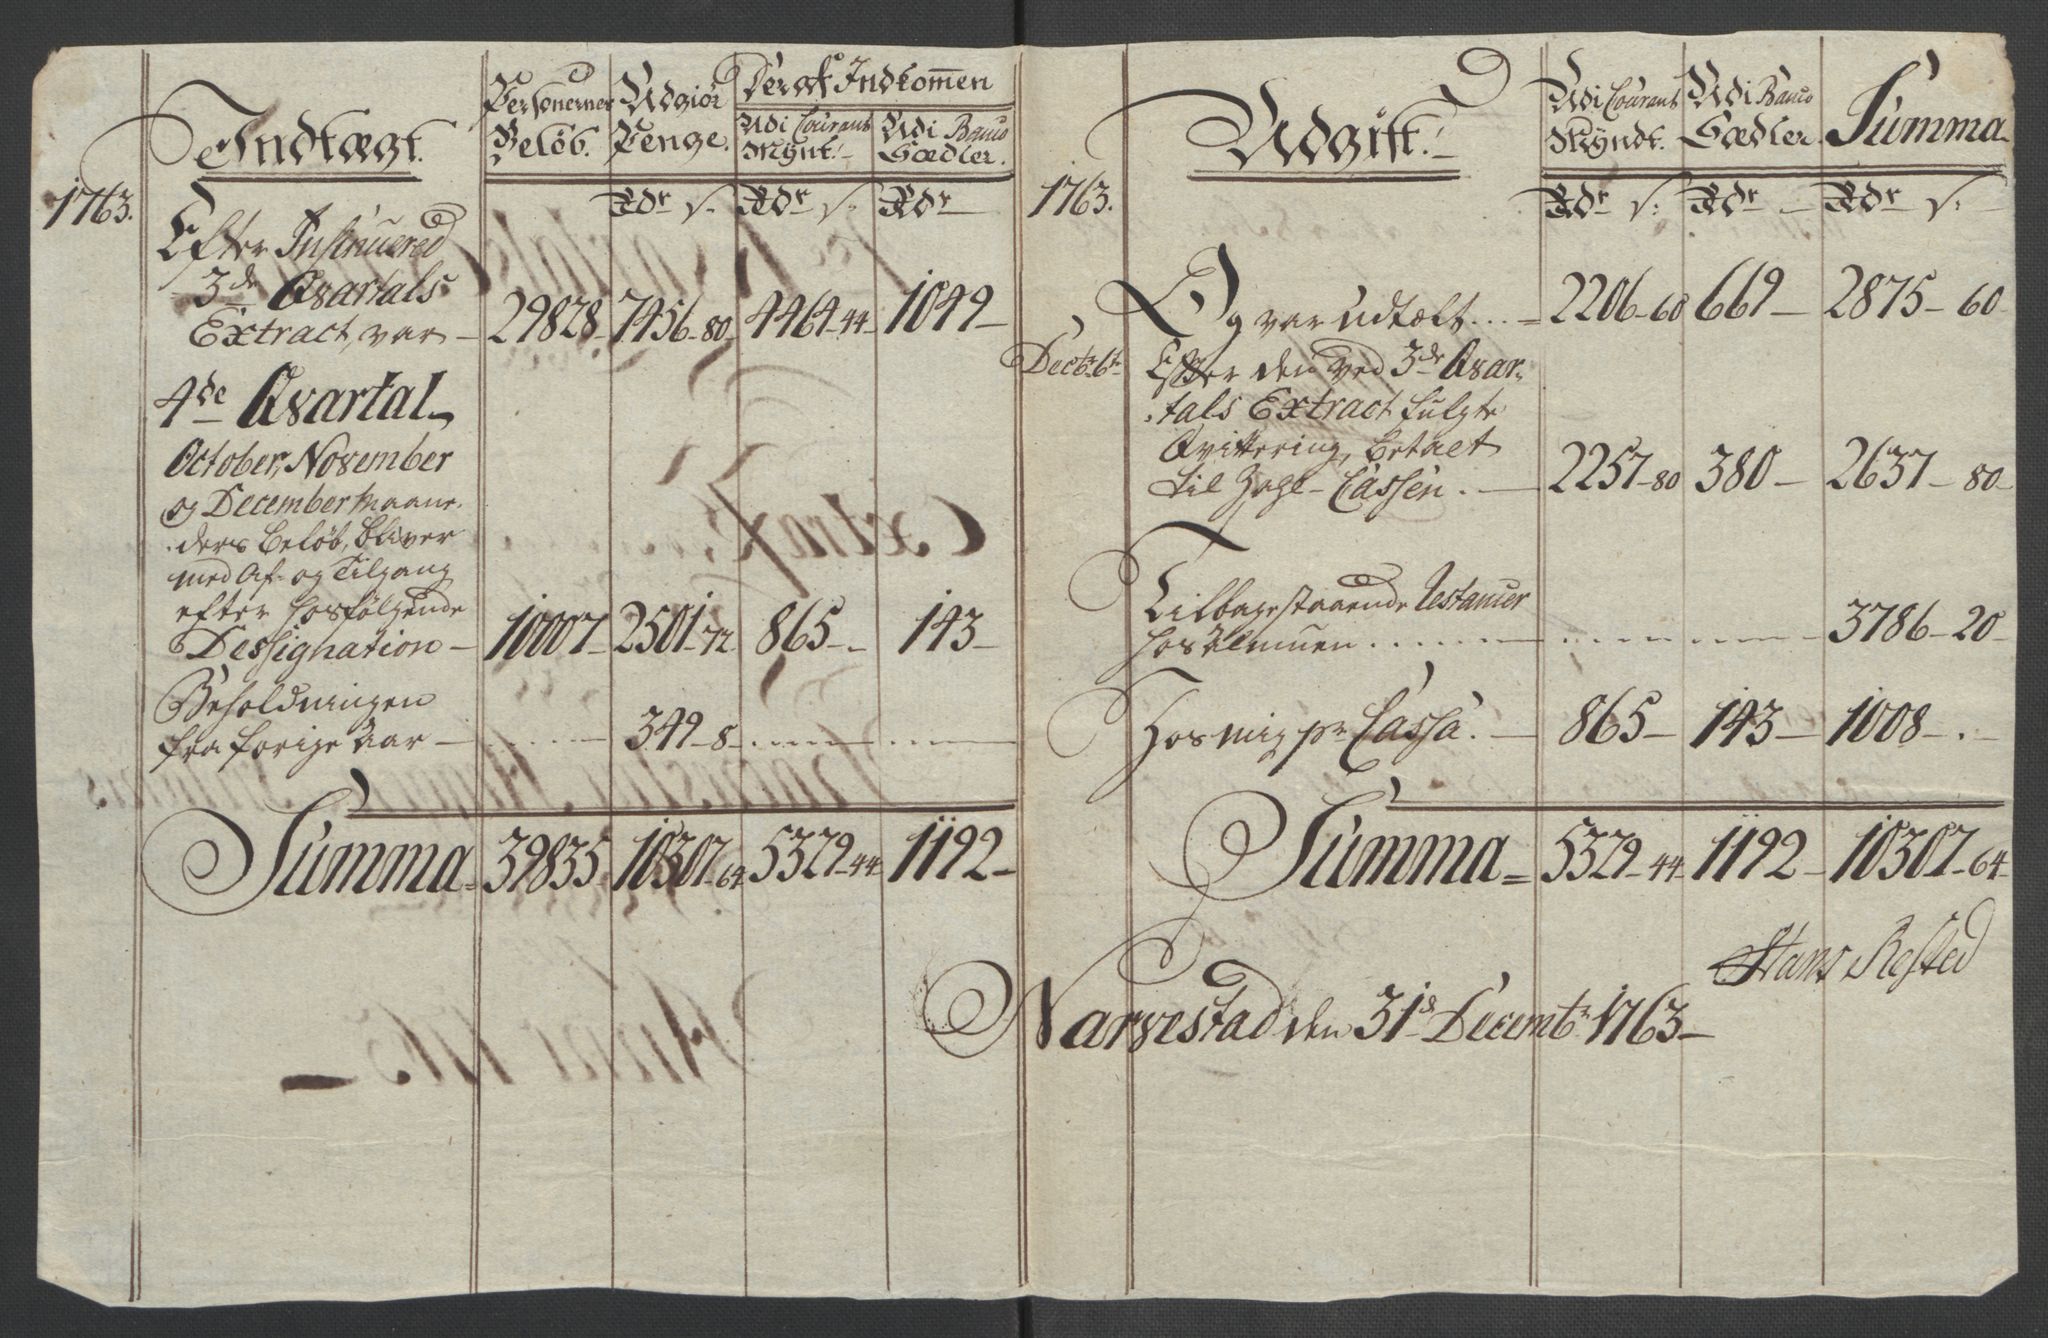 Indtægt.
Personernes Beløb.
Udgiør Penge.
Deraf Indkom̅en
Udi Courant Mynt.
Udi Banco Sædler.
Rdr s. Rdr s. Rdr
1763.
Efter Insinuered
3de Qvartals
Extract, var – 29828 – 7456 – 80 – 4464 – 44 – 1049 –
4de Qvartal
October, November
og December Maane-
ders Beløb, bliver
med Af- og Tilgang
efter hosfølgende
Dessignation – 10007 – 2501 – 72 – 865 – . – 143 –
Beholdningen
fra forige Aar – 349 – 8 –
Summa = 39835 – 10307 – 64 5329 – 44 – 1192 –
Udgift.
Udi Courant Myndt.
Udi Banco Sædler.
Summa
Rdr s: Rdr – Rdr s:
1763.
Og var udtælt . . . . = 2206 – 60 669 – 2875 – 60 –
Decbr 6t
Efter den ved 3de Qvar-
tals Extract fulgte
Qvittering, betalt
til Zahl-Cassen. – 2257 – 80 380 – 2637 – 80 –
Tilbagestaaende Restancer
hos Almuen . . . . 3786 – 20 –
Hos mig pr Cassa. – 865 – 143 – 1008 – . –
Summa = 5329 – 44 – 1192 – 10307 – 64 –
Hans Resfted
Narvestad den 31de Decembr 1763 –